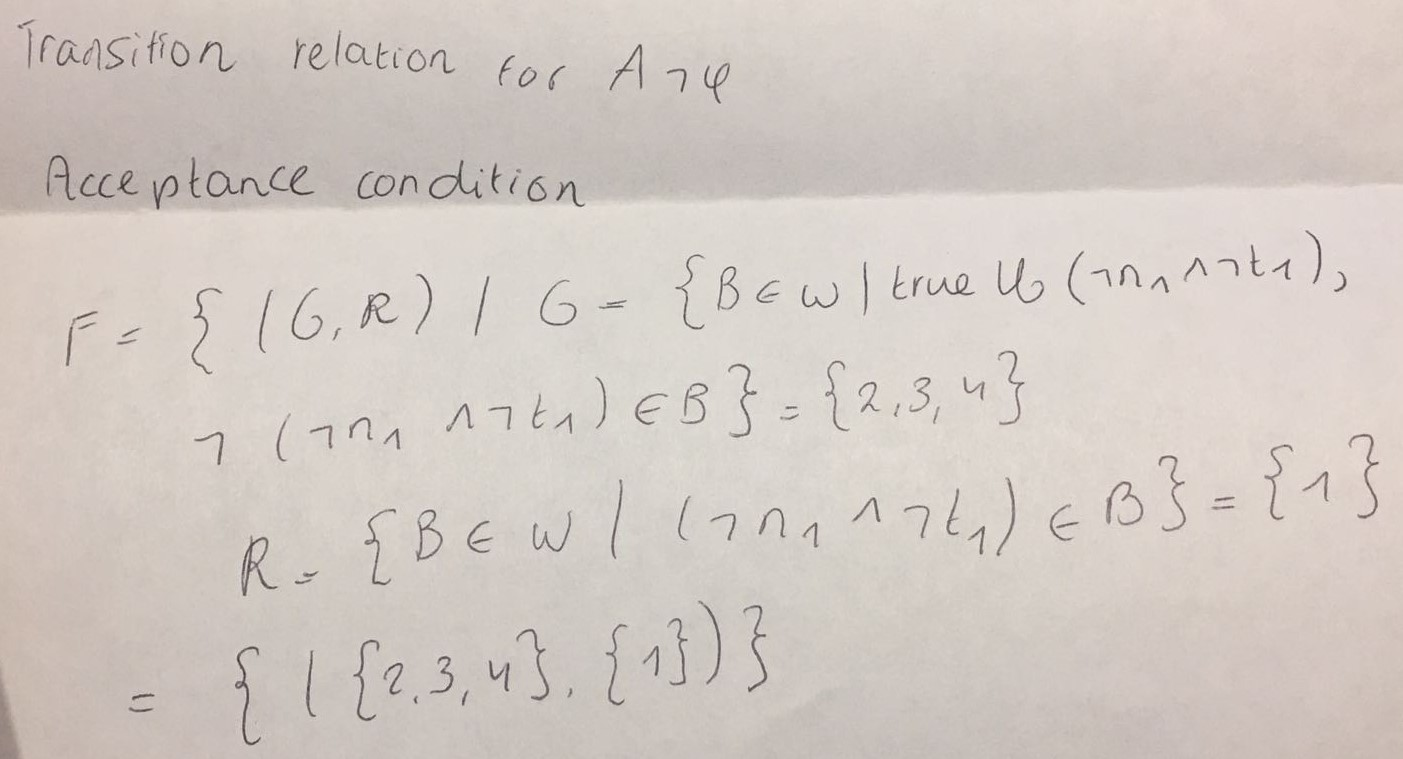 Transition relation for A¬φ
Acceptance condition
F = { (G, R) | G = {B ∈ W | true U (¬n₁ ∧ ¬t₁),
¬ (¬n₁ ∧ ¬t₁) ∈ B} = {2,3,4}
R = {B ∈ W | (¬n₁ ∧ ¬t₁) ∈ B} = {1}
= { ( {2,3,4}, {1}) }